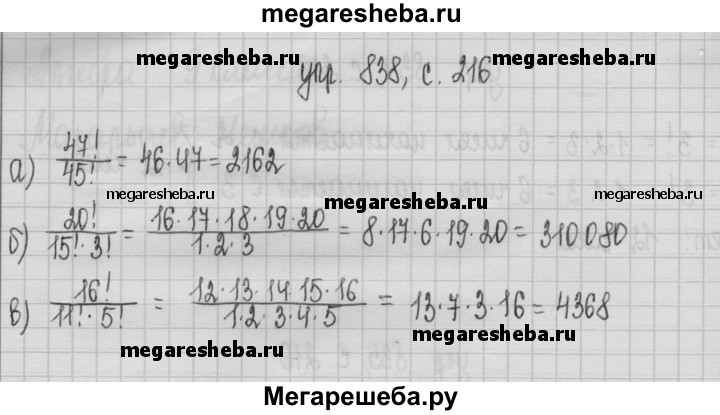 megaresheba.ru
megaresheba.ru
упр. 838, с. 216
megaresheba.ru
а) 47!/45! = 46·47 = 2162
megaresheba.ru
megaresheba.ru
б) 20!/15!·3! = 16·17·18·19·20/1·2·3 = 8·17·6·19·20 = 310080
megaresheba.ru
в) 16!/11!·5! = 12·13·14·15·16/1·2·3·4·5 = 13·7·3·16 = 4368
megaresheba.ru
megaresheba.ru
Мегарешеба.ру